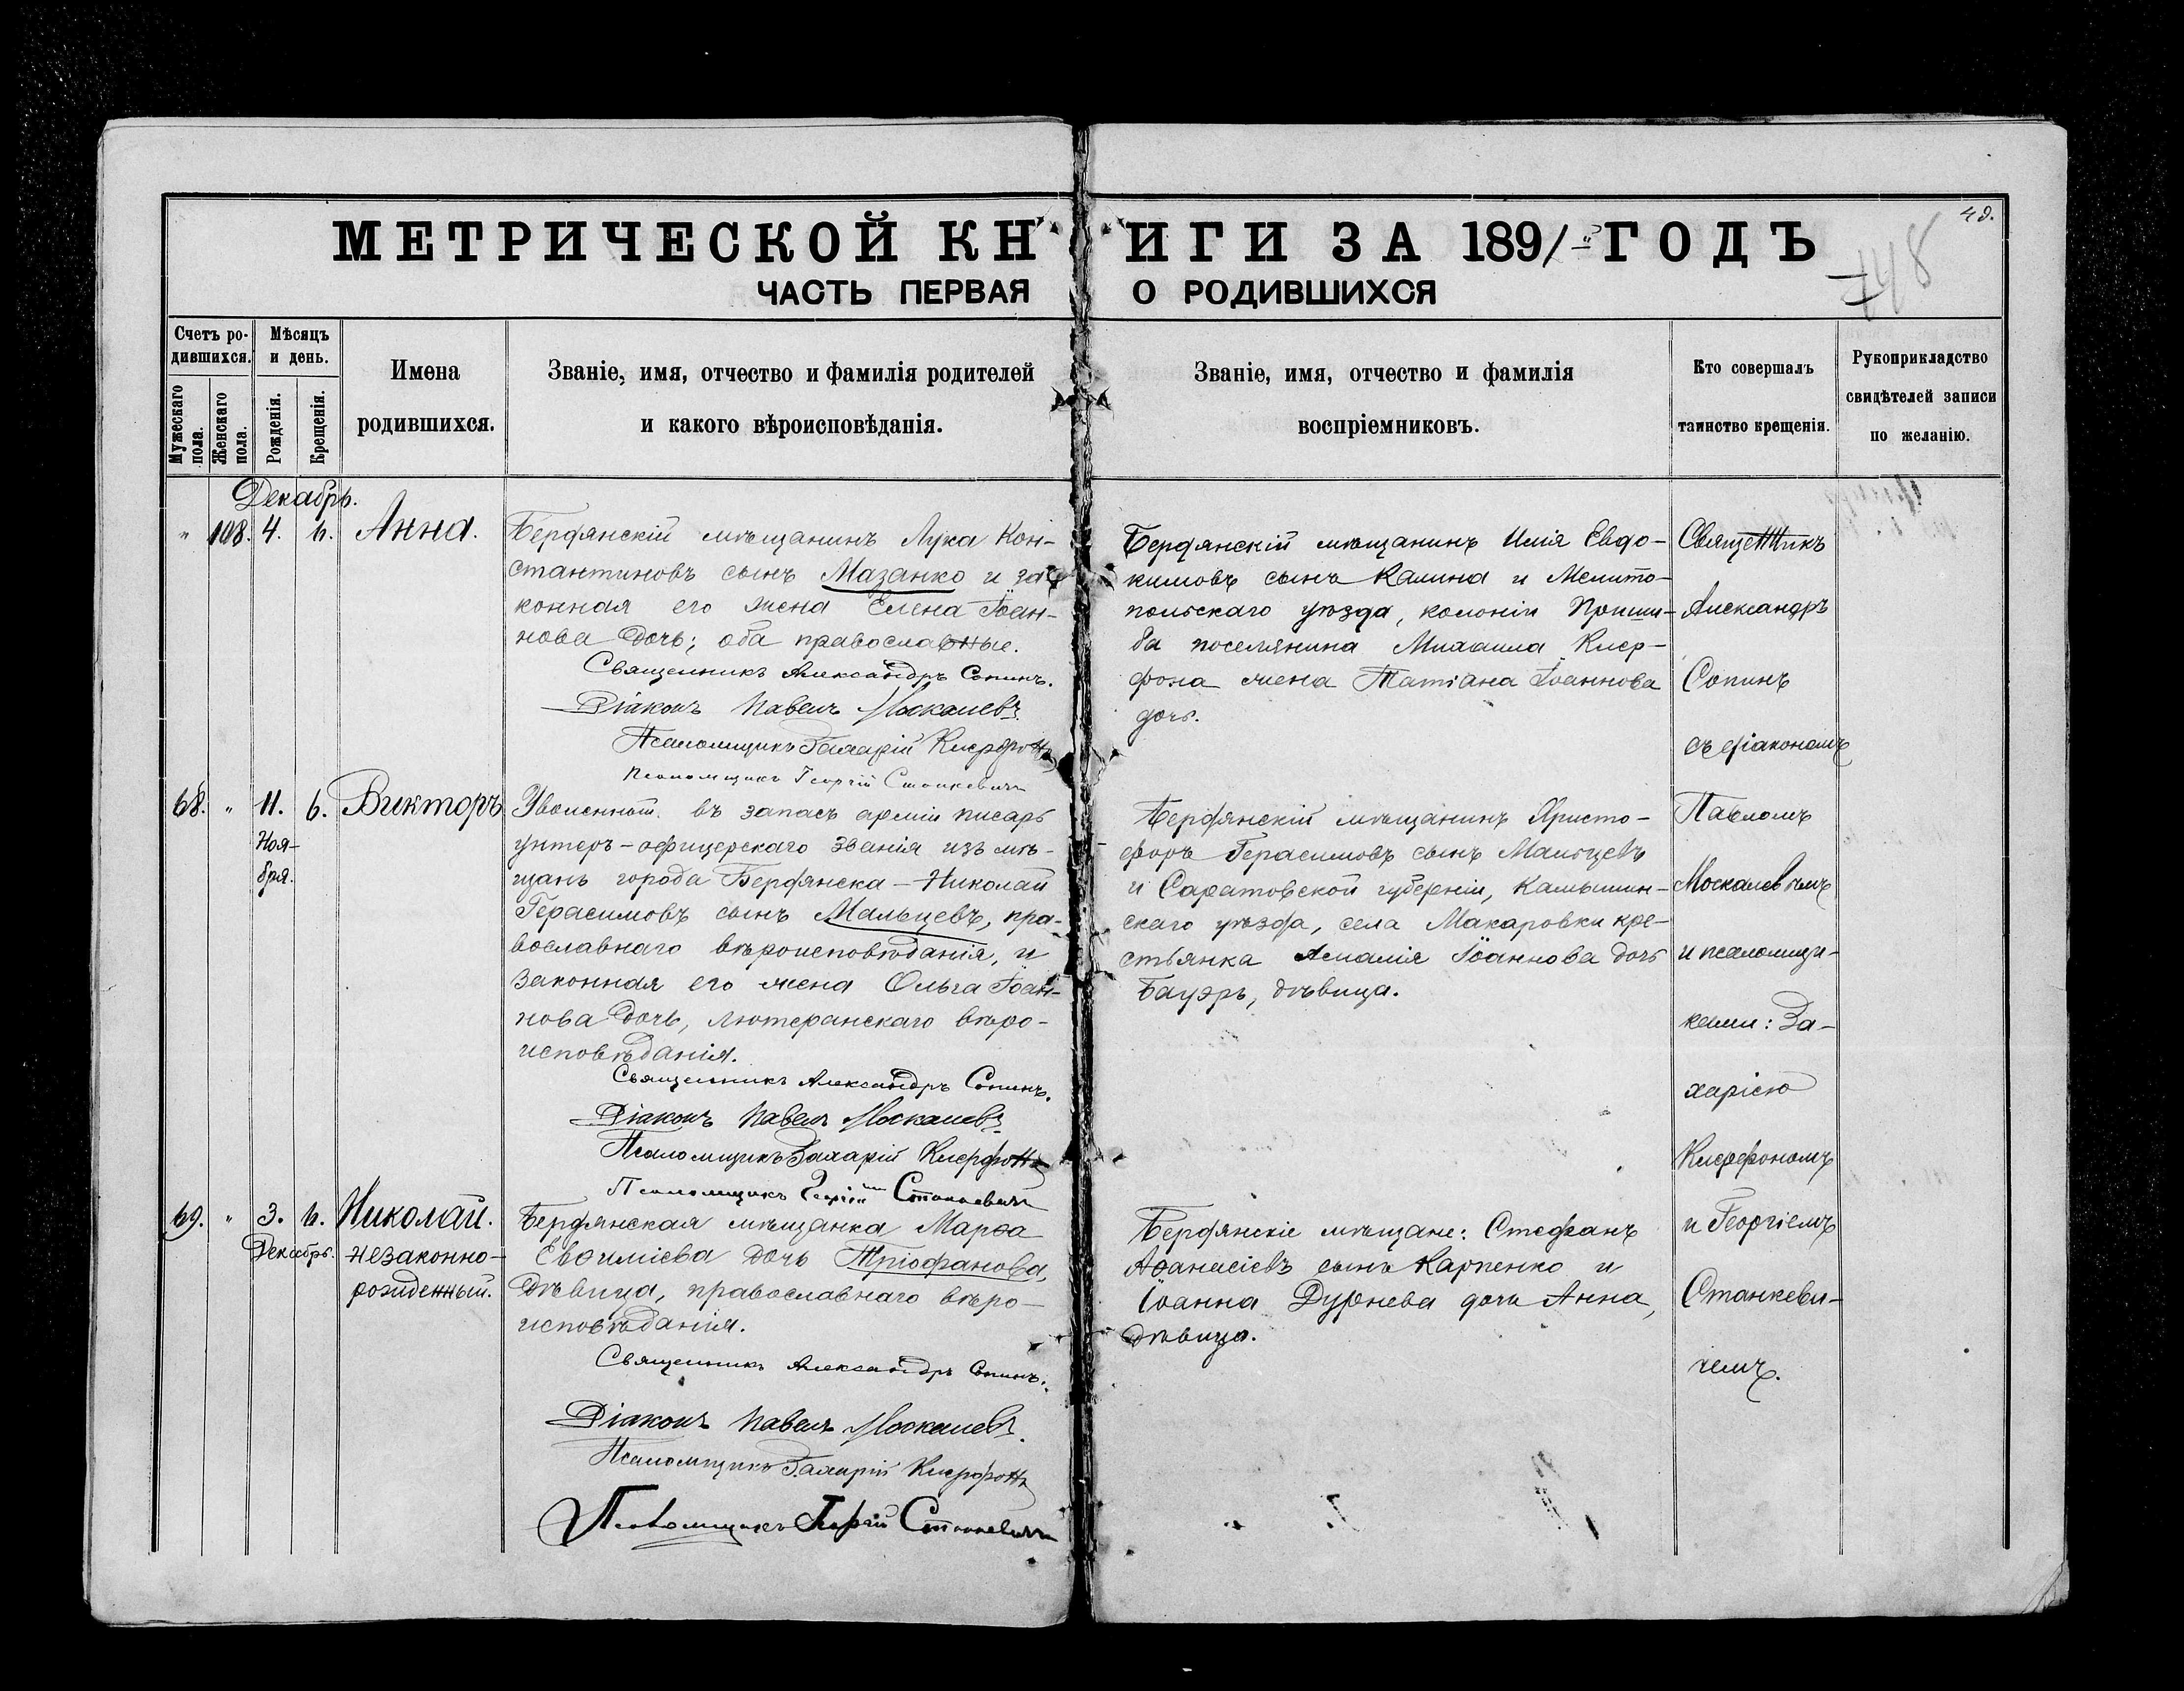 49.
748
МЕТРИЧЕСКОЙ КНИГИ ЗА 1891-й ГОДЪ
ЧАСТЬ ПЕРВАЯ О РОДИВШИХСЯ
Счетъ ро-
дившихся.
Мужескаго
пола.
Женскаго
пола.
Мѣсяцъ
и день.
Рожденія.
Крещенія.
Имена
родившихся.
Званіе, имя, отчество и фамилія родителей
и какого вѣроисповѣданія.
Званіе, имя, отчество и фамилія
воспріемниковъ.
Кто совершалъ
таинство крещенія.
Рукоприкладство
свидѣтелей записи
по желанію.
Декабрь.
" 108. 4. 6. Анна.
Бердянскій мѣщанинъ Лука Кон-
стантиновъ сынъ Мазанко и за-
конная его жена Елена Іоан-
нова дочь; оба православные.
Священникъ Александръ Сопинъ.
Діаконъ Павелъ Москалевъ
Псаломщикъ Захарій Клерфонъ
Псаломщикъ Георгій Станкевичъ
Бердянскій мѣщанинъ Илія Евдо-
кимовъ сынъ Калина и Мелито-
польскаго уѣзда, колоніи Приши-
ба поселянина Михаила Клер-
фона жена Татіана Іоаннова
дочь.
68. " 11. 6. Викторъ
Ноя-
бря.
Уволенный въ запасъ арміи писарь
унтеръ-офицерскаго званія изъ мѣ-
щанъ города Бердянска - Николай
Герасимовъ сынъ Мальцевъ, пра-
вославнаго вѣроисповѣданія, и
законная его жена Ольга Іоан-
нова дочь, лютеранскаго вѣро-
исповѣданія.
Священникъ Александръ Сопинъ.
Діаконъ Павелъ Москалевъ
Псаломщикъ Захарій Клерфонъ
Псаломщикъ Георгій Станкевичъ
Бердянскій мѣщанинъ Христо-
форъ Герасимовъ сынъ Мальцевъ
и Саратовской губерніи, Камышин-
скаго уѣзда, села Макаровки кре-
стьянка Амалія Іоаннова дочь
Бауэръ, дѣвица.
69. " 3. 6. Николай.
Декабрь. незаконно-
рожденный.
Бердянская мѣщанка Марѳа
Евѳиміева дочь Тріофанова,
дѣвица, православнаго вѣро-
исповѣданія.
Священникъ Александръ Сопинъ.
Діаконъ Павелъ Москалевъ.
Псаломщикъ Захарій Клерфонъ
Псаломщикъ Георгій Станкевичъ
Бердянскіе мѣщане: Стефанъ
Аѳанасіевъ сынъ Карпенко и
Іоанна Дурнева дочь Анна,
дѣвица.
Священникъ
Александръ
Сопинъ
съ діакономъ
Павломъ
Москалевымъ
и псаломщи-
ками: За-
харіею
Клерфономъ
и Георгіемъ
Станкеви-
чемъ.